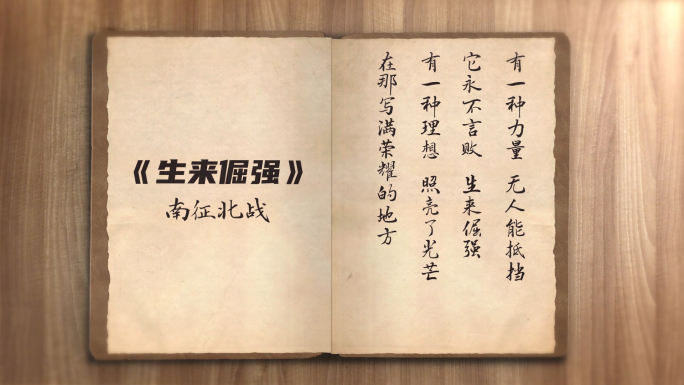 《生来倔强》
南征北战
有一种力量 无人能抵挡
它永不言败 生来倔强
有一种理想 照亮了光芒
在那写满荣耀的地方